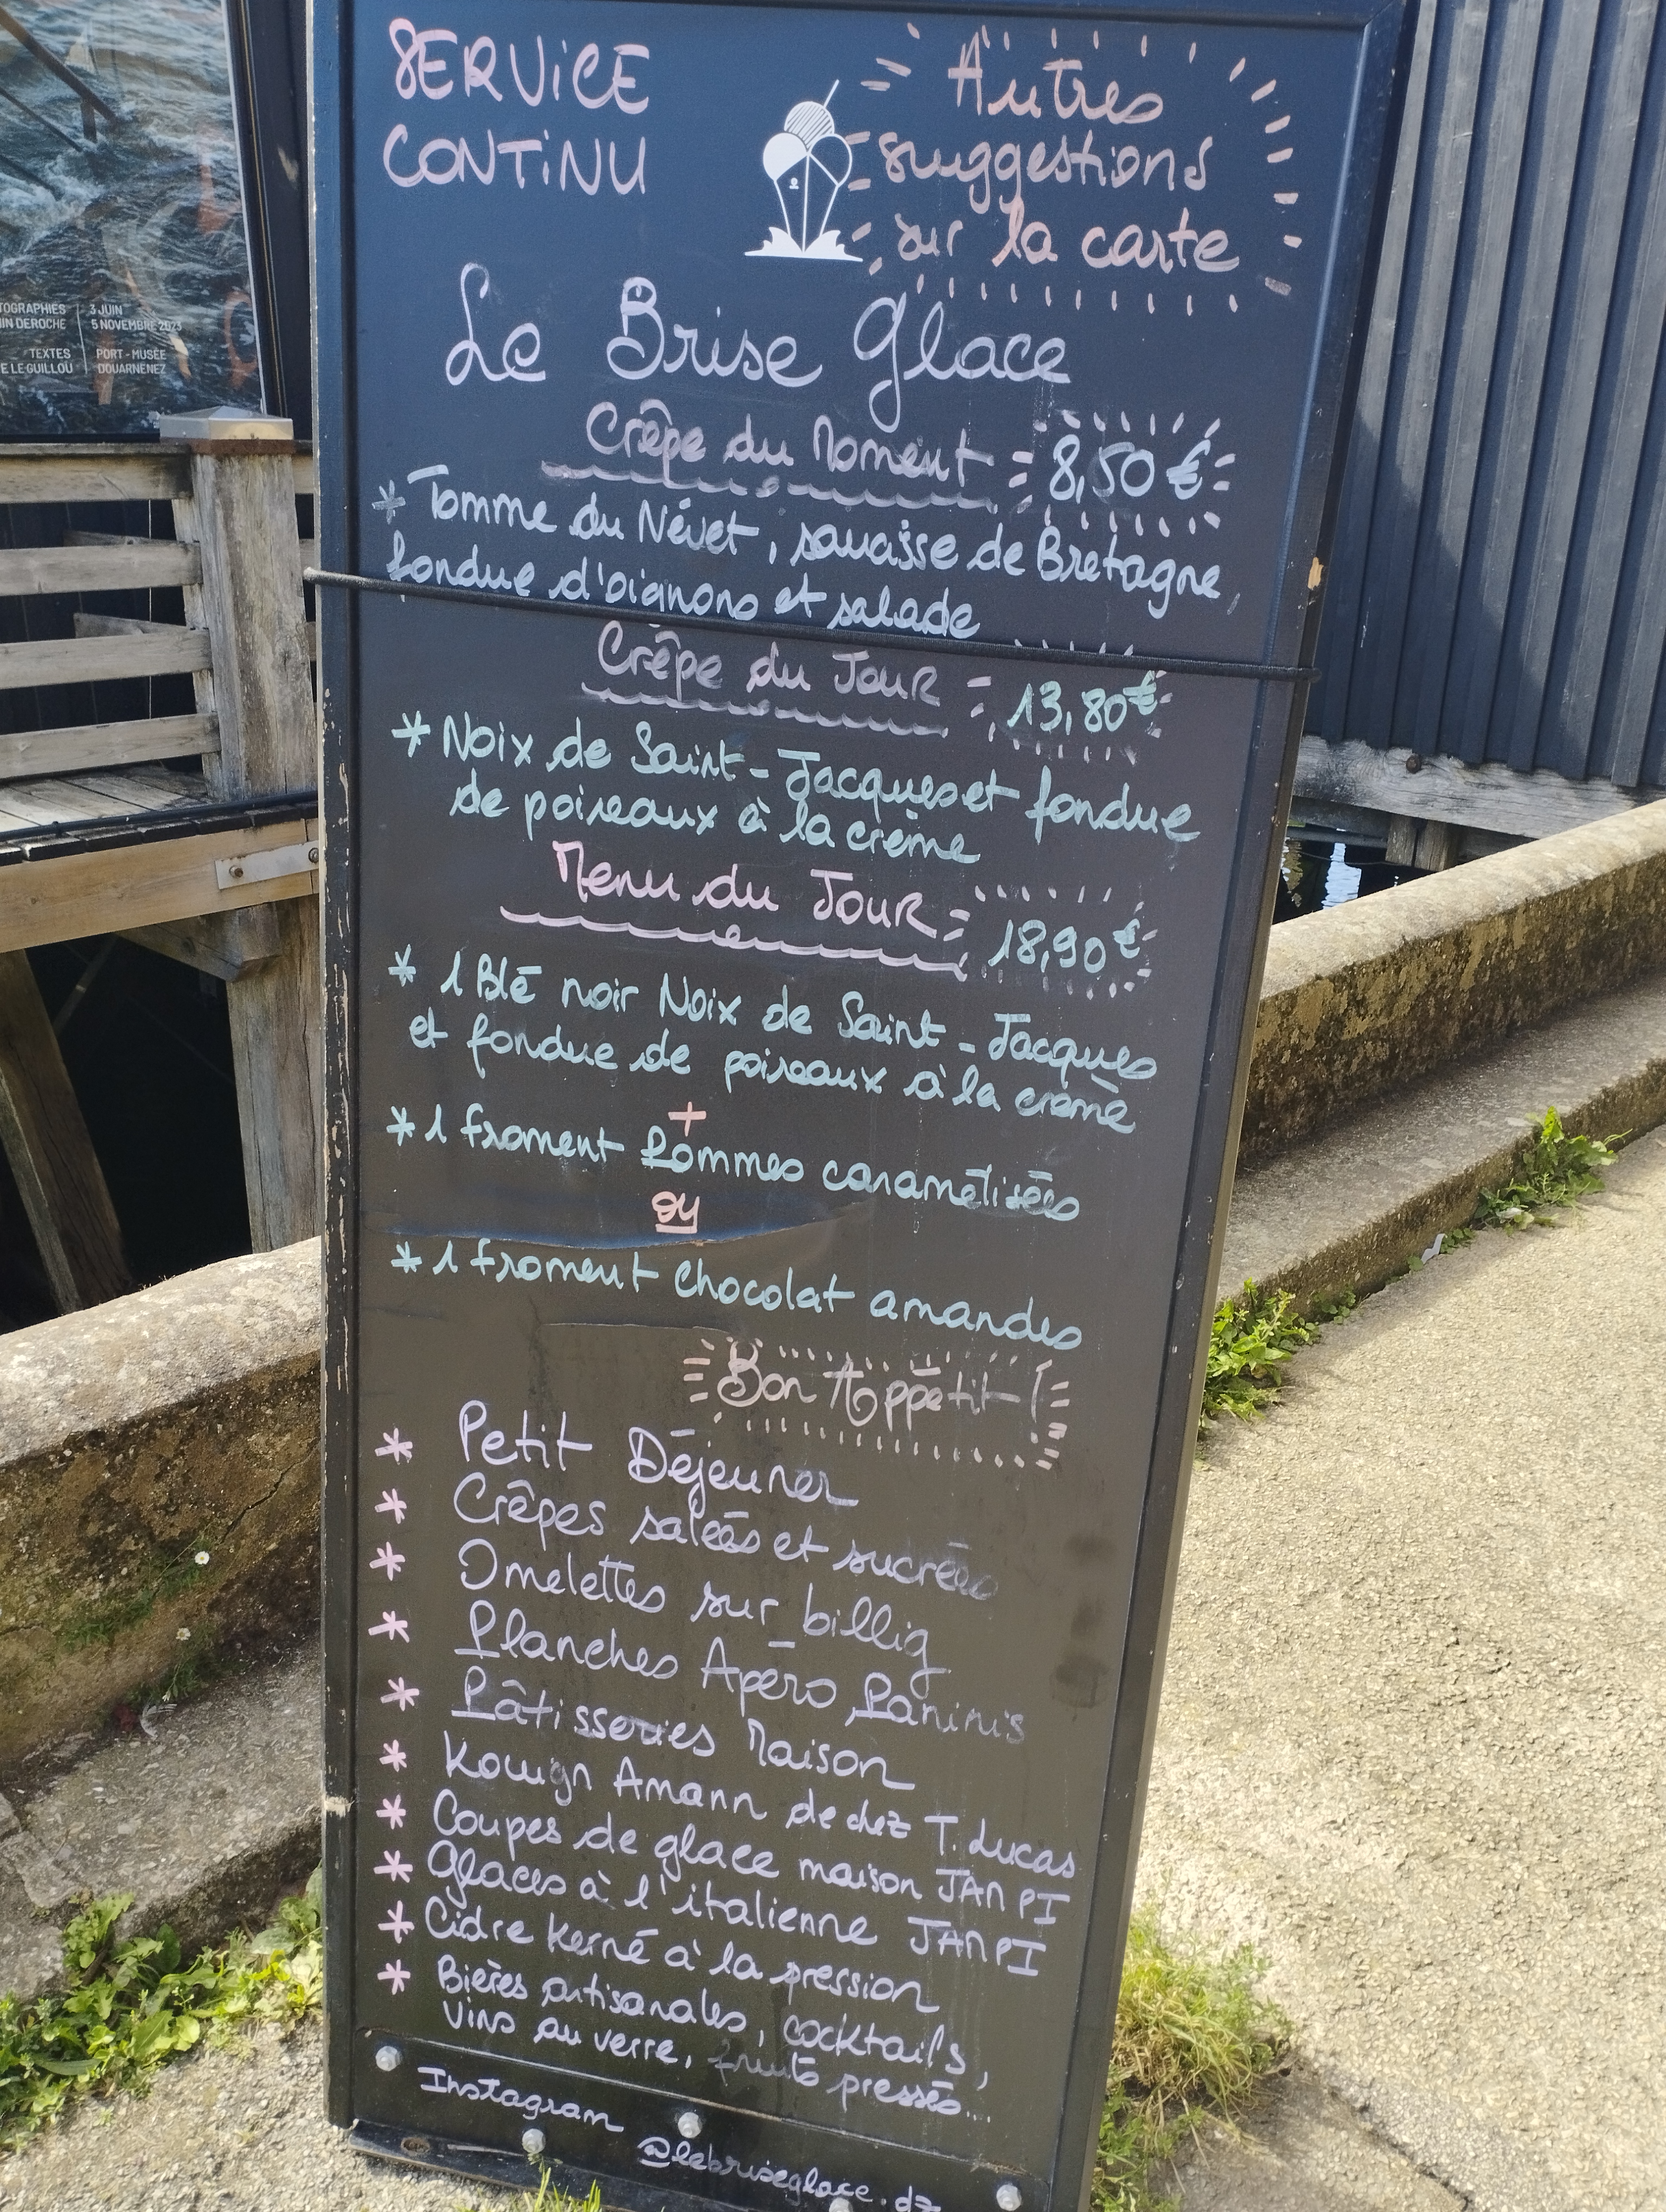 TOGRAPHIES
IN DEROCHE
3 JUIN
5 NOVEMBRE 2023
TEXTES
E LE GUILLOU
PORT-MUSÉE
DOUARNENEZ
SERVICE
CONTINU
Autres
suggestions
sur la carte
Le Brise Glace
Crêpe du Moment 8,50 €
* Tomme du Névet, saucisse de Bretagne,
fondue d'oignons et salade
Crêpe du Jour 13,80€
* Noix de Saint-Jacques et fondue
de poireaux à la crème
Menu du Jour 18,90€
* 1 Blé noir Noix de Saint-Jacques
et fondue de poireaux à la crème
+
* 1 froment Pommes caramélisées
ou
* 1 froment Chocolat amandes
Bon Appétit !
* Petit Déjeuner
* Crêpes salées et sucrées
* Omelettes sur billig
* Planches Apéro, Paninis
* Pâtisseries Maison
* Kouign Amann de chez T. Lucas
* Coupes de glace maison JAMPI
* Glaces à l'italienne JAMPI
* Cidre Kerné à la pression
* Bières artisanales, cocktails,
vins au verre, fruits pressés...
Instagram
@lebriseglace.dz